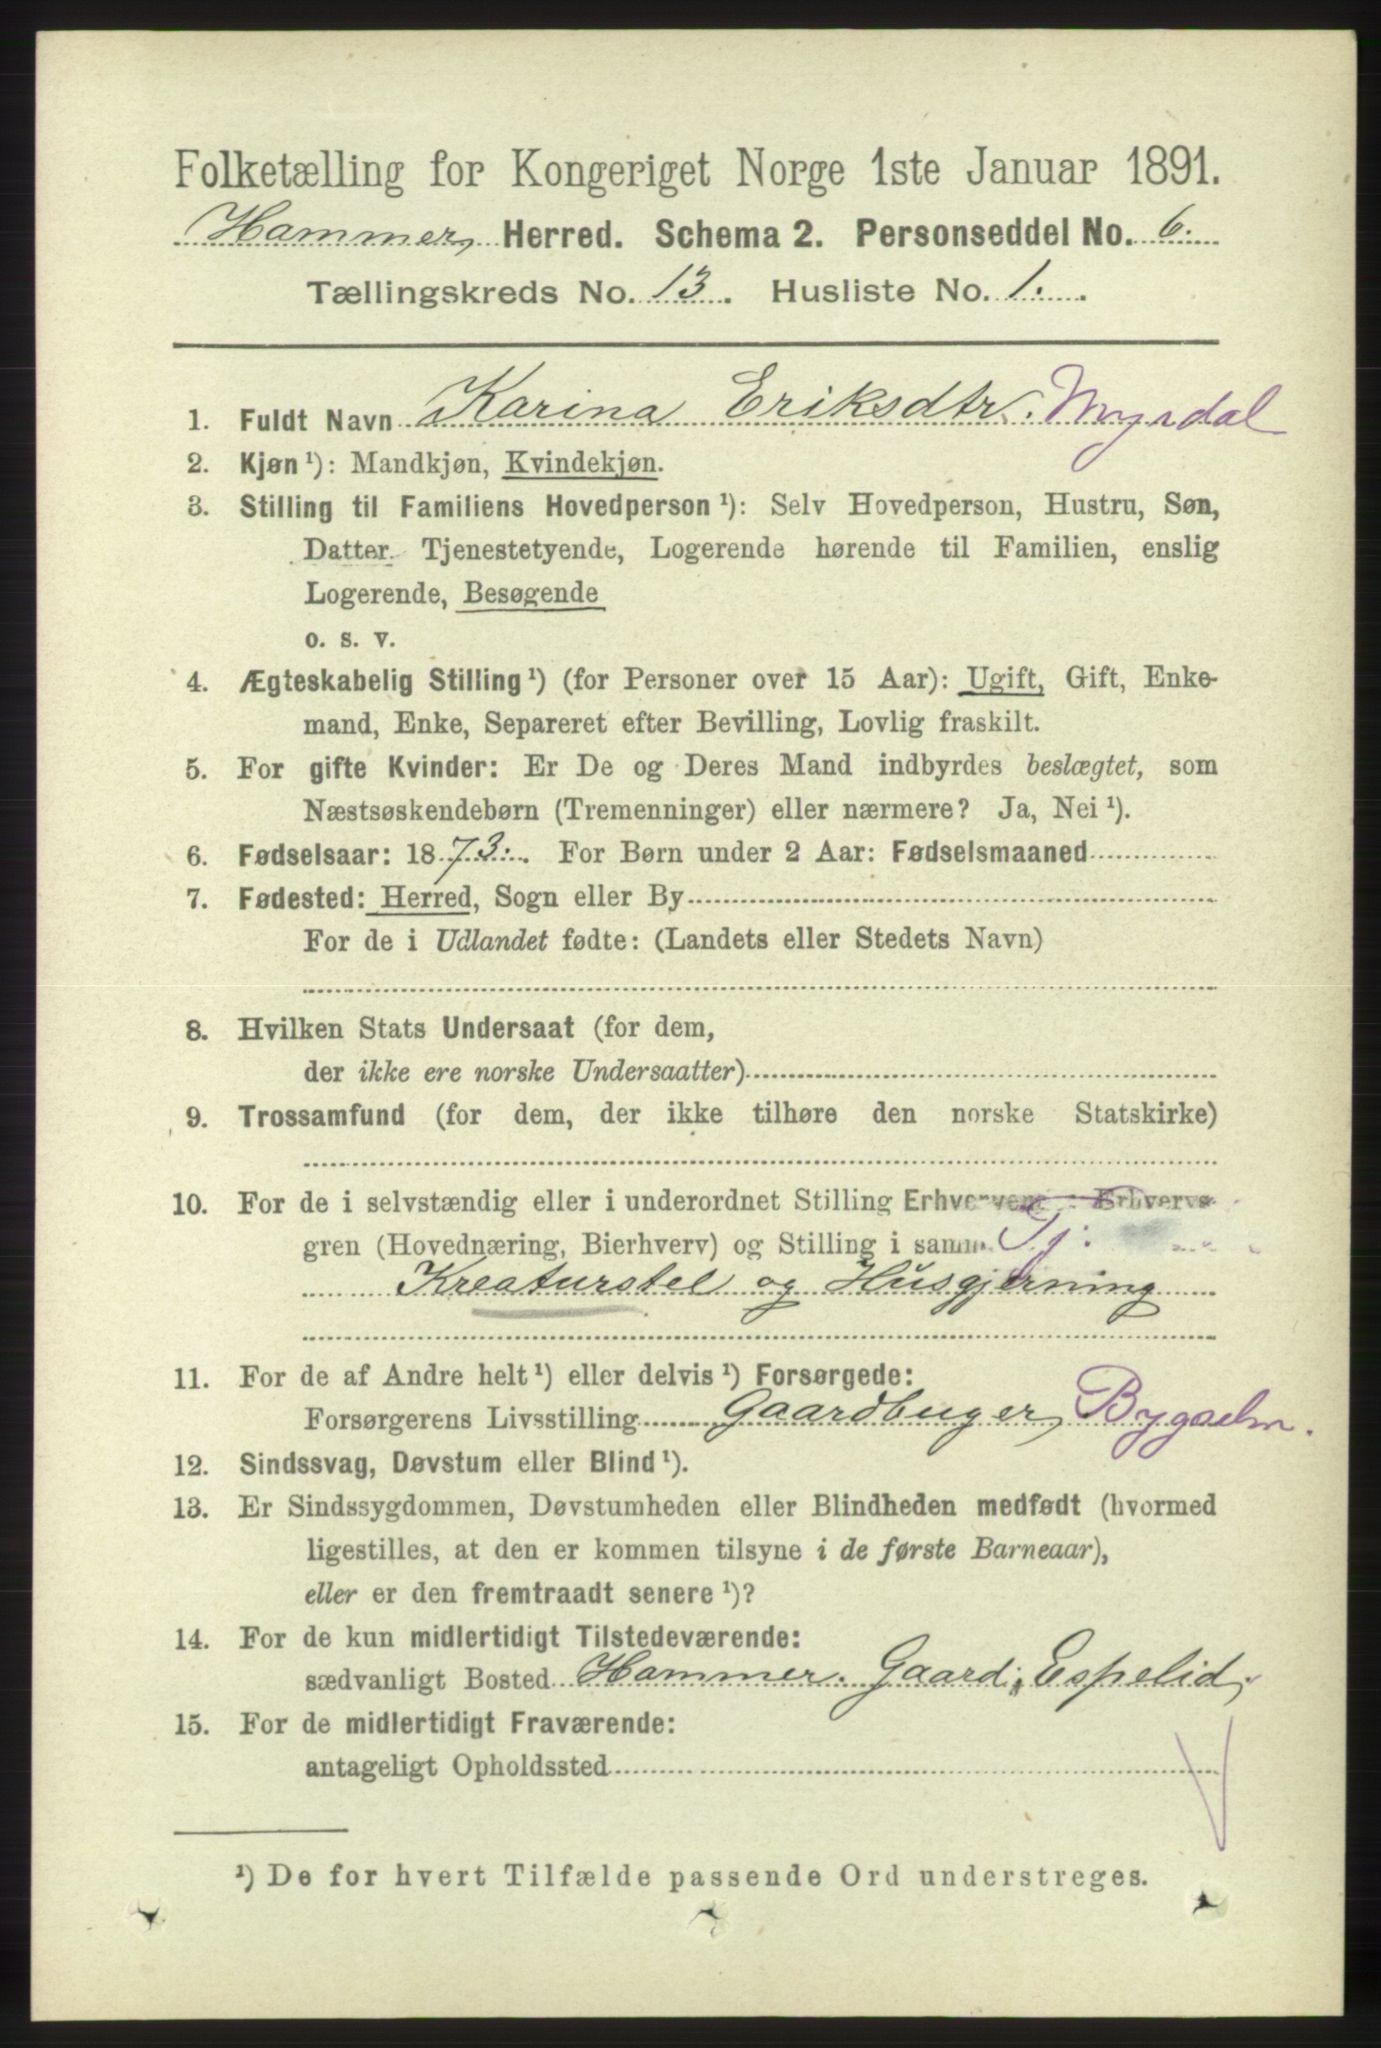 Folketælling for Kongeriget Norge 1ste Januar 1891.
Hammer Herred. Schema 2. Personseddel No. 6.
Tællingskreds No. 13. Husliste No. 1.
1. Fuldt Navn Karina Eriksdtr. Myrdal
2. Kjøn ¹): Mandkjøn, Kvindekjøn.
3. Stilling til Familiens Hovedperson ¹): Selv Hovedperson, Hustru, Søn,
Datter, Tjenestetyende, Logerende hørende til Familien, enslig
Logerende, Besøgende
o. s. v.
4. Ægteskabelig Stilling ¹) (for Personer over 15 Aar): Ugift, Gift, Enke-
mand, Enke, Separeret efter Bevilling, Lovlig fraskilt.
5. For gifte Kvinder: Er De og Deres Mand indbyrdes beslægtet, som
Næstsøskendebørn (Tremenninger) eller nærmere? Ja, Nei ¹).
6. Fødselsaar: 1873. For Børn under 2 Aar: Fødselsmaaned
7. Fødested: Herred, Sogn eller By
For de i Udlandet fødte: (Landets eller Stedets Navn)
8. Hvilken Stats Undersaat (for dem,
der ikke ere norske Undersaatter)
9. Trossamfund (for dem, der ikke tilhøre den norske Statskirke)
10. For de i selvstændig eller i underordnet Stilling Erhvervende: Erhvervs-
gren (Hovednæring, Bierhverv) og Stilling i samme Tj.
Kreaturstel og Husgjerning
11. For de af Andre helt ¹) eller delvis ¹) Forsørgede:
Forsørgerens Livsstilling Gaardbruger, Bygselm.
12. Sindssvag, Døvstum eller Blind ¹).
13. Er Sindssygdommen, Døvstumheden eller Blindheden medfødt (hvormed
ligestilles, at den er kommen tilsyne i de første Barneaar),
eller er den fremtraadt senere ¹)?
14. For de kun midlertidigt Tilstedeværende:
sædvanligt Bosted Hammer. Gaard: Espelid.
15. For de midlertidigt Fraværende:
antageligt Opholdssted
¹) De for hvert Tilfælde passende Ord understreges.